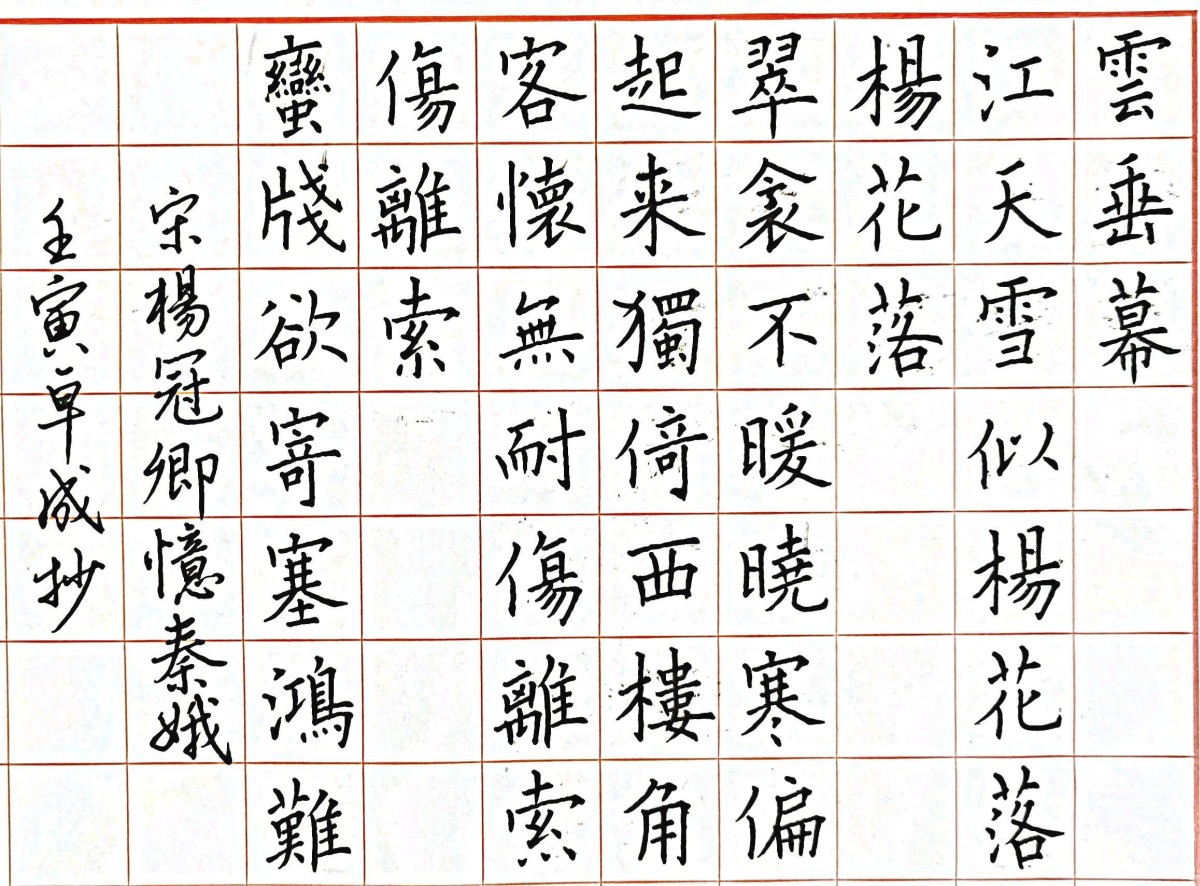 雲垂幕
江天雪似楊花落
楊花落
翠衾不暖曉寒偏
起来獨倚西樓角
客懷無耐傷離索
傷離索
蠻牋欲寄塞鴻難
宋楊冠卿憶秦娥
壬寅草成抄